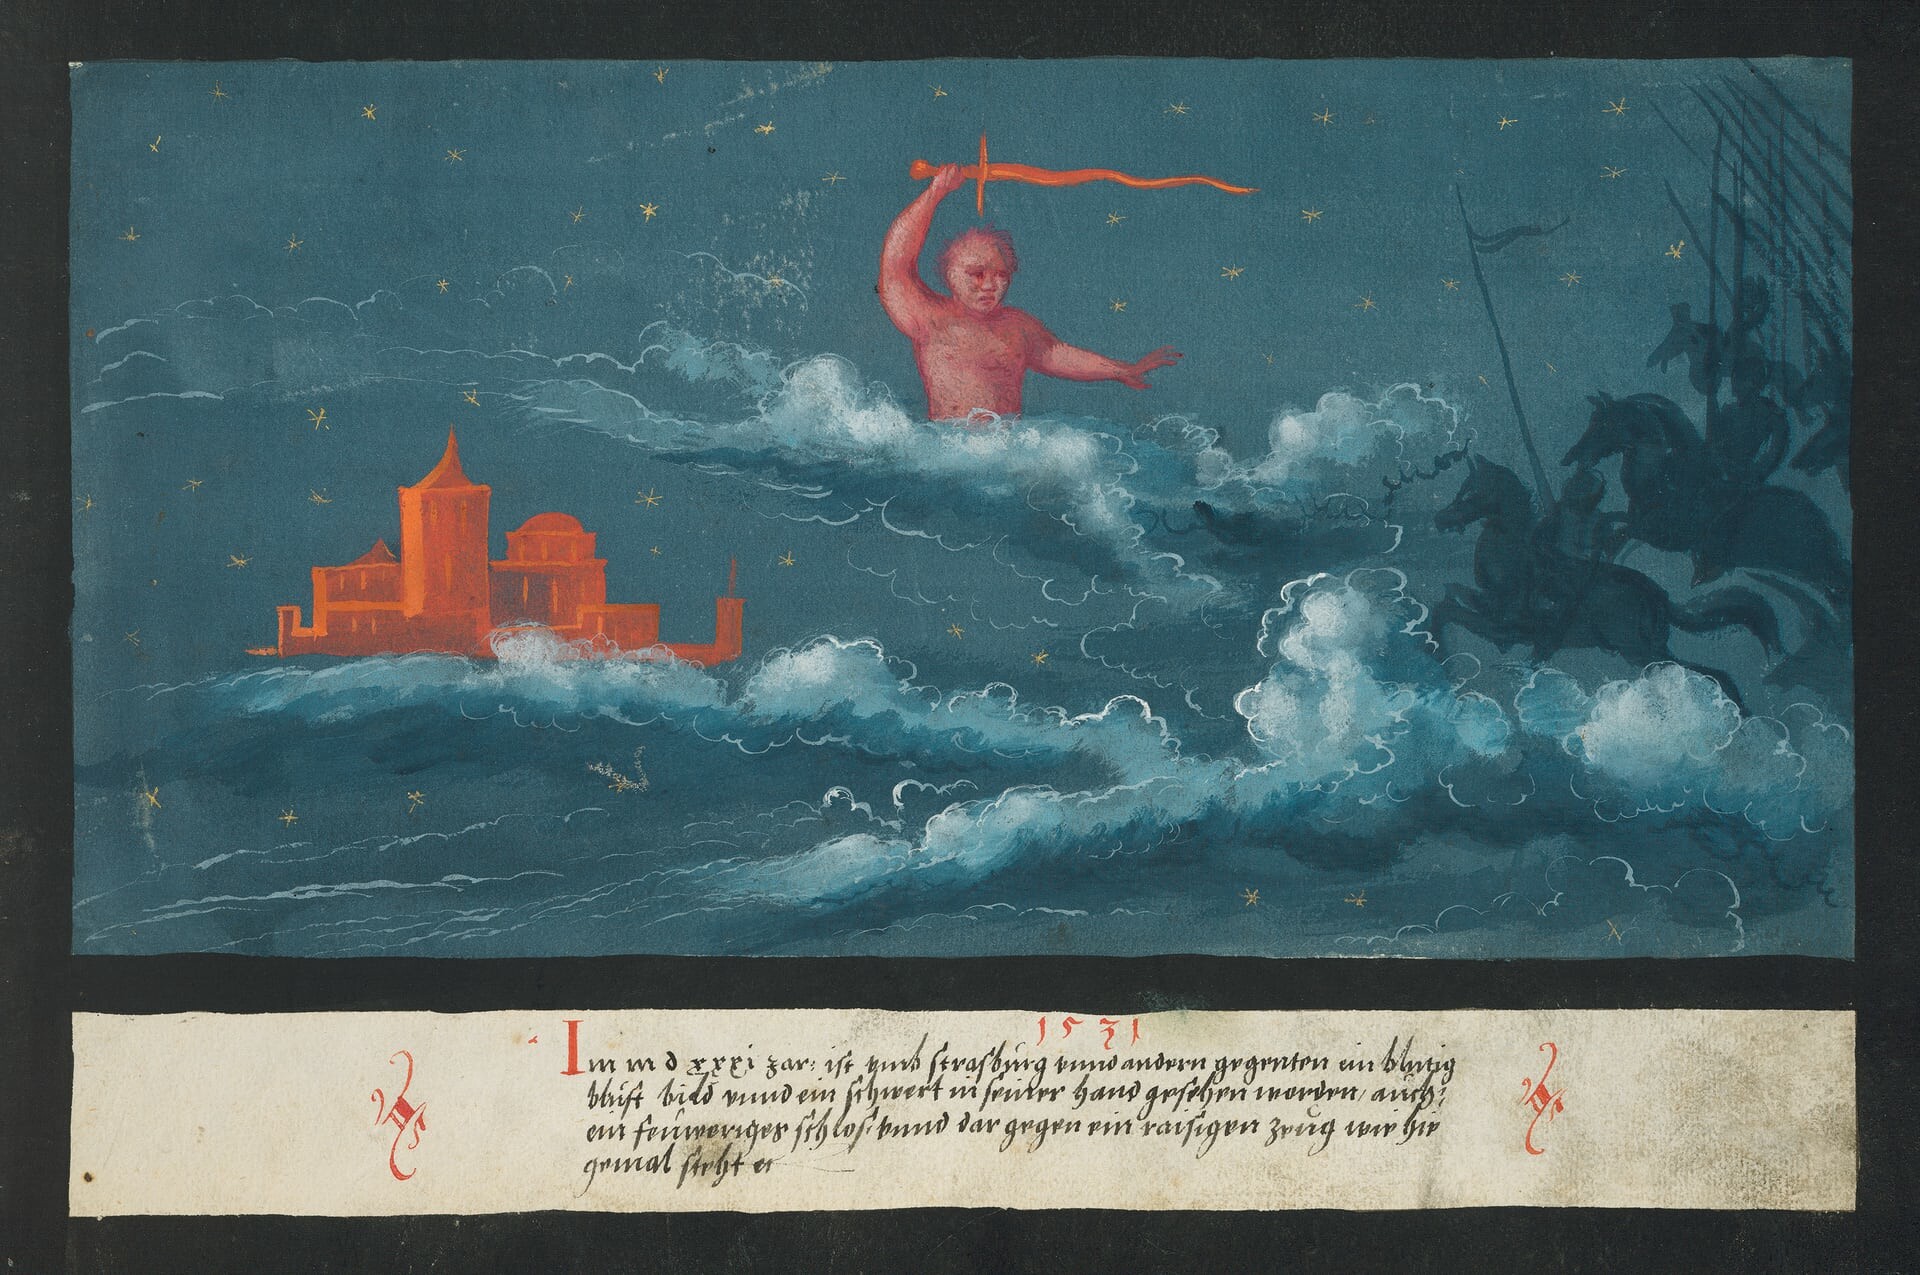 1531
Im m d xxxi Jar: ist umb strasburg unnd andern gegenten ein blutig
blust bild unnd ein schwert in seiner hand gesehen worden, auch:
ein feuweriges schlos: unnd dar gegen ein raisigen zeug wie hie
gemal steht ec